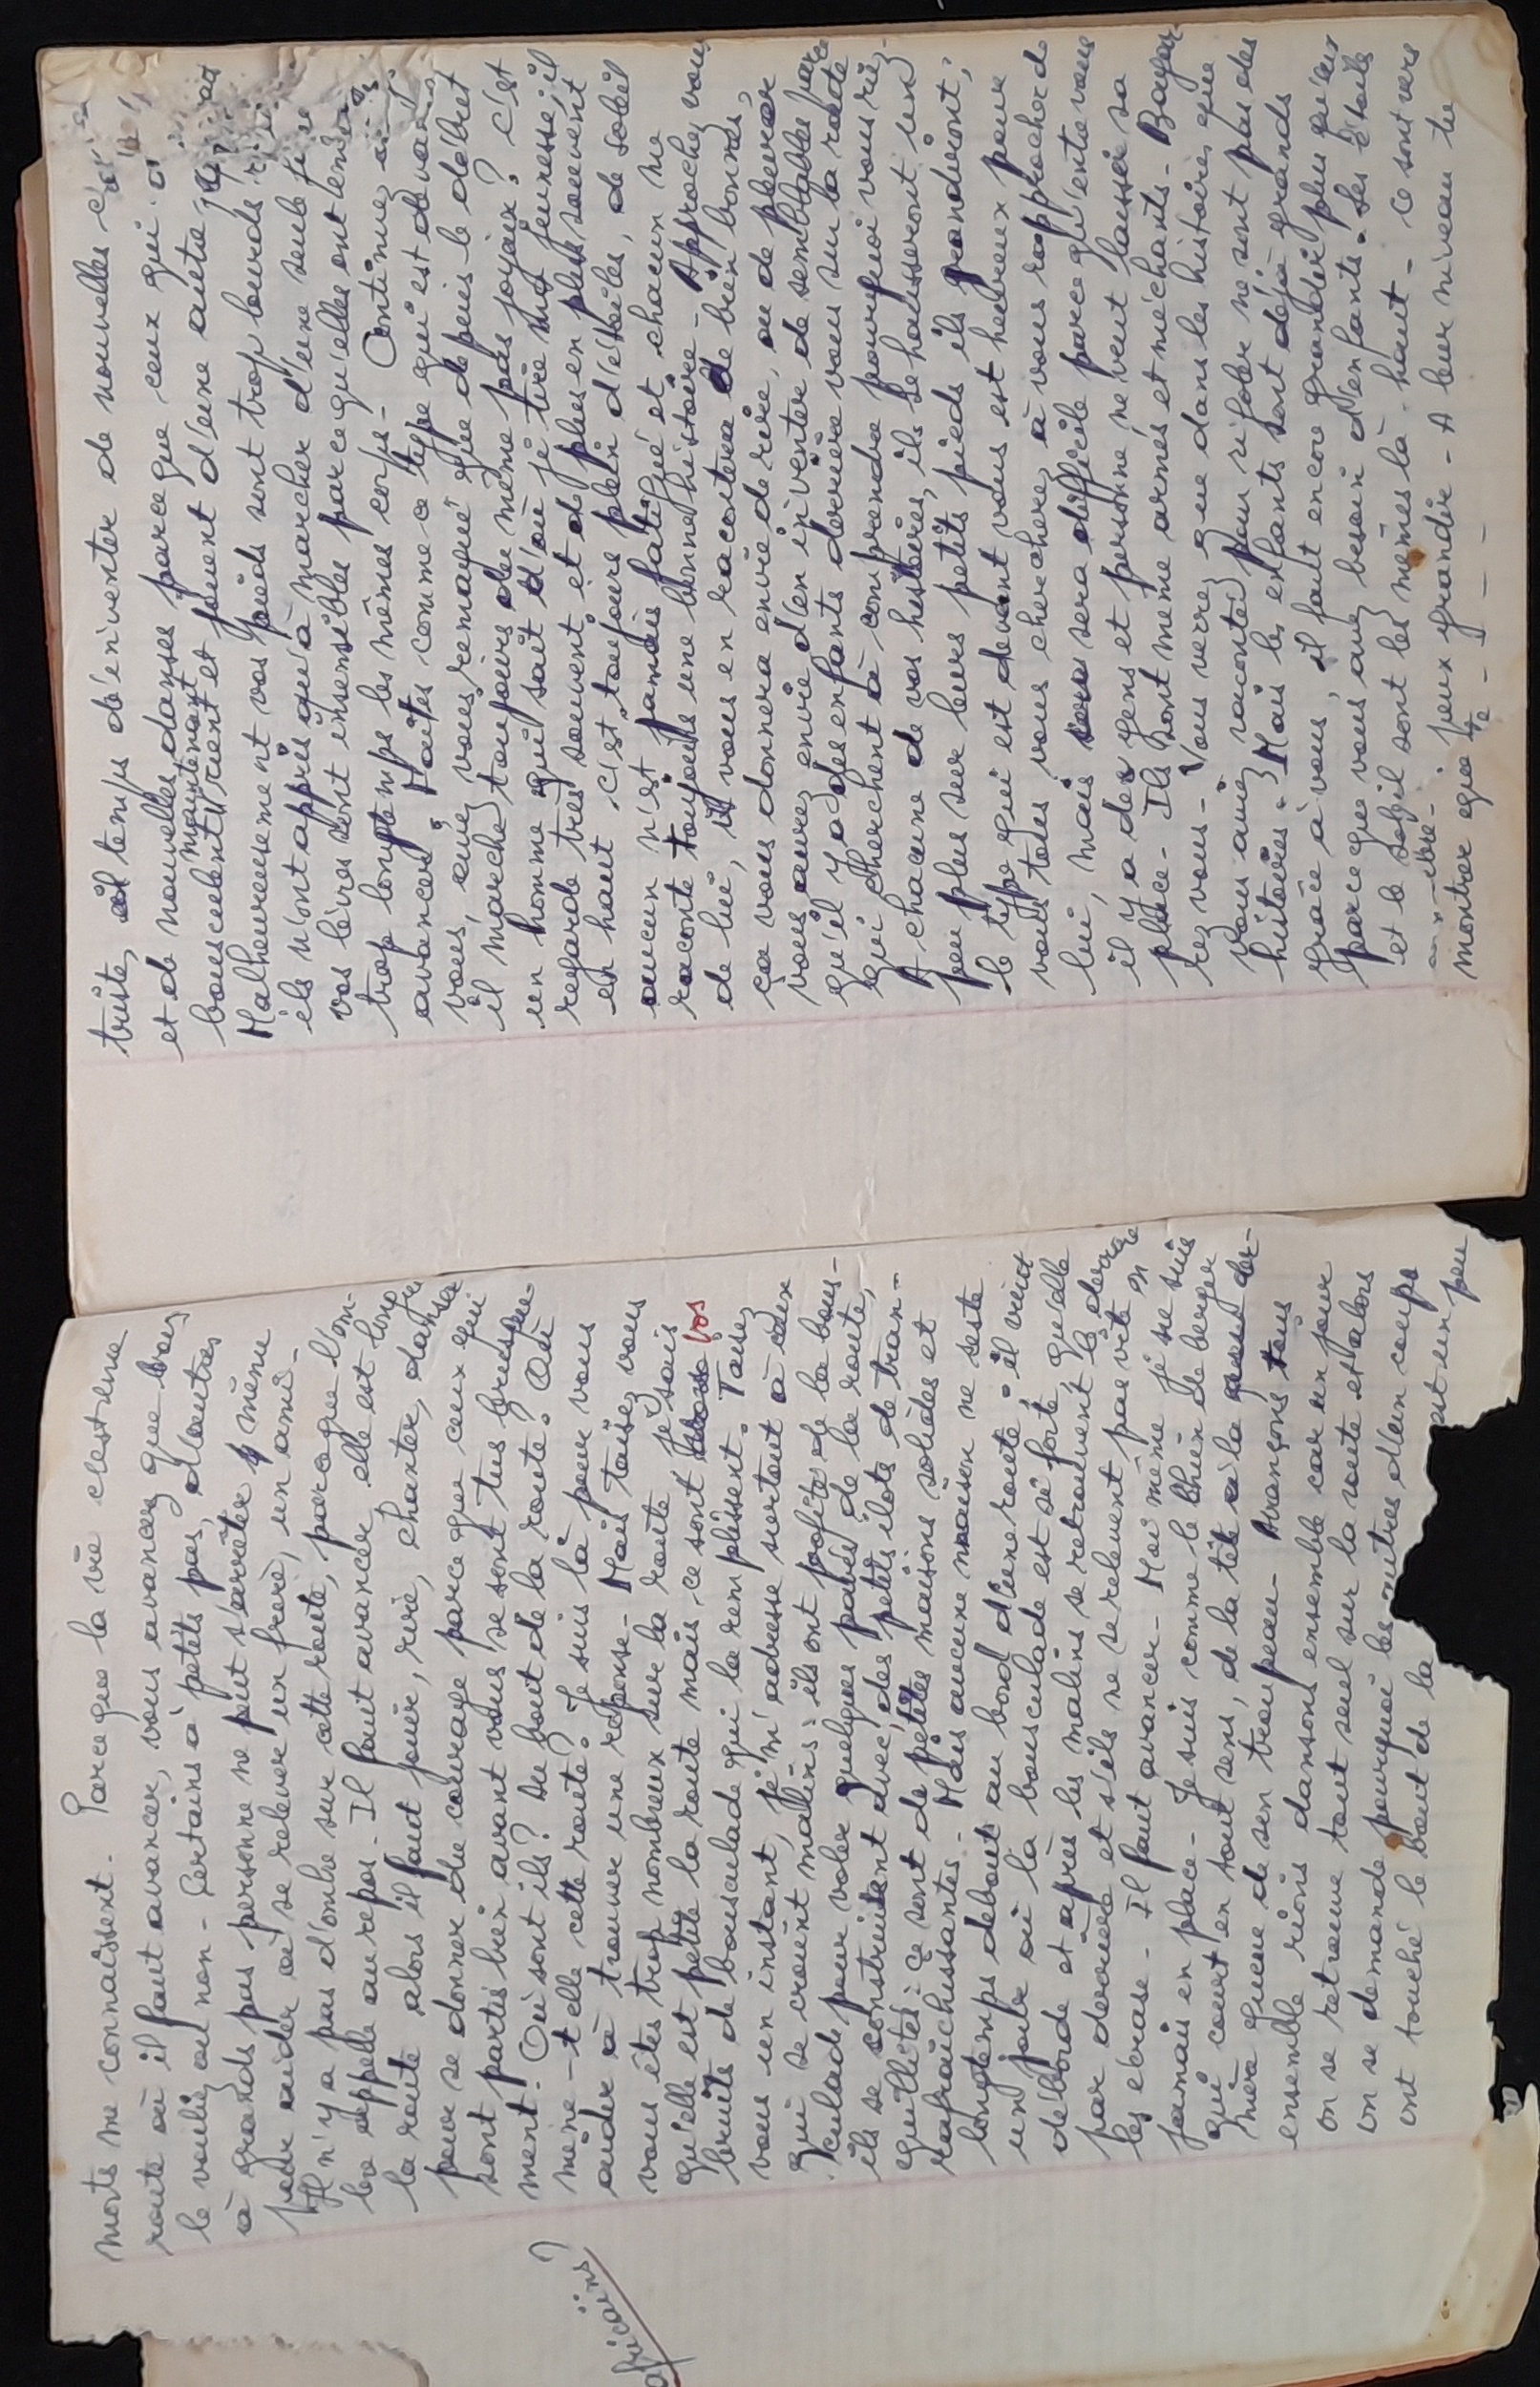 morts me connaissent. Parce que la vie c'est une
route où il faut avancer, vous avancez que vous
le vouliez ou non - Certains à petits pas, d'autres
à grands pas personne ne peut s'arrêter même
pour aider à se relever un frère, un ami -
Il n'y a pas d'ombre sur cette route, parce que l'om-
bre appelle au repos. Il faut avancer elle est longue
la route alors il faut jouer, rire, chanter, danser
pour se donner du courage parce que ceux qui
sont partis bien avant vous se sont tus brusque-
ment. Où sont ils? Au bout de la route? Où
mène-t-elle cette route? Je suis là pour vous
aider à trouver une réponse - Mais taisez vous
vous êtes trop nombreux sur la route je sais
qu'elle est petite la route mais ce sont vos
bruits de bousculade qui la remplissent. Taisez
vous un instant, je m'adresse surtout à ceux
qui se croient malins: ils ont profité de la bous-
culade pour voler quelques pavés de la route,
ils se construisent avec, des petits ilots de tran-
quillité: ce sont de petites maisons solides et
rafraichissantes - Mais aucune maison ne reste
longtemps debout au bord d'une route: il vient
un jour où la bousculade est si forte, qu'elle
déborde et après les malins se retrouvent là derrière
par derrière et s'ils ne se relèvent pas vite on
les écrase - Il faut avancer - Moi même je ne suis
jamais en place - Je suis comme le chien de berger
qui court en tout sens, de la tête à la der-
nière queue de son troupeau - Avançons tous
ensemble rions dansons ensemble car un jour
on se retrouve tout seul sur la route et alors
on se demande pourquoi les autres d'un coup
ont touché le bout de la est un peu
africains?
triste, il temps d'inventer de nouvelles
et de nouvelles danses parce que ceux qui
bousculent, rient et jouent d'une autre
maintenant
Malheureusement vos pieds sont trop lourds
ils n'ont appris qu'à marcher d'une seule
vos lèvres sont insensibles parce qu'elles ont
trop longtemps les mêmes corps - Continuez
avancez, Faites comme ce type qui est devant
vous, avez vous remarqué que depuis le début
il marche toujours du même pas joyeux? C'est
un homme qui sait d'où je tire ma jeunesse, il
regarde très souvent et de plus en plus souvent
en haut c'est toujours plein d'étoiles, de soleil
aucun n'est jamais fatigué et chacun me
raconte toujours une bonne histoire - Approchez vous
de lui, il vous en racontera de bien bonnes,
ça vous donnera envie de rire, ou de pleurer
vous aurez envie d'en inventer de semblables parce
qu'il y a des enfants derrière vous sur la route
qui cherchent à comprendre pourquoi vous riez -
A chacune de vos histoires, ils se hausseront un
peu plus sur leurs petits pieds ils grandiront;
le type qui est devant vous est heureux pour
vous tous vous cherchez à vous rapprocher de
lui, mais sera difficile parce qu'entre vous
il y a des gens et personne ne veut laisser sa
place - Ils sont même armés et méchants - Bagar-
rez vous - Vous verrez que dans les histoires que
vous aurez racontées pour rigoler ne sont plus des
histoires. Mais les enfants sont déjà grands
grâce à vous, il faut encore grandir plus qu'eux
parce que vous avez besoin d'enfants. Les étoiles
et le soleil sont les mêmes là-haut - Ce sont vers
montrer que tu peux grandir - A leur niveau tu